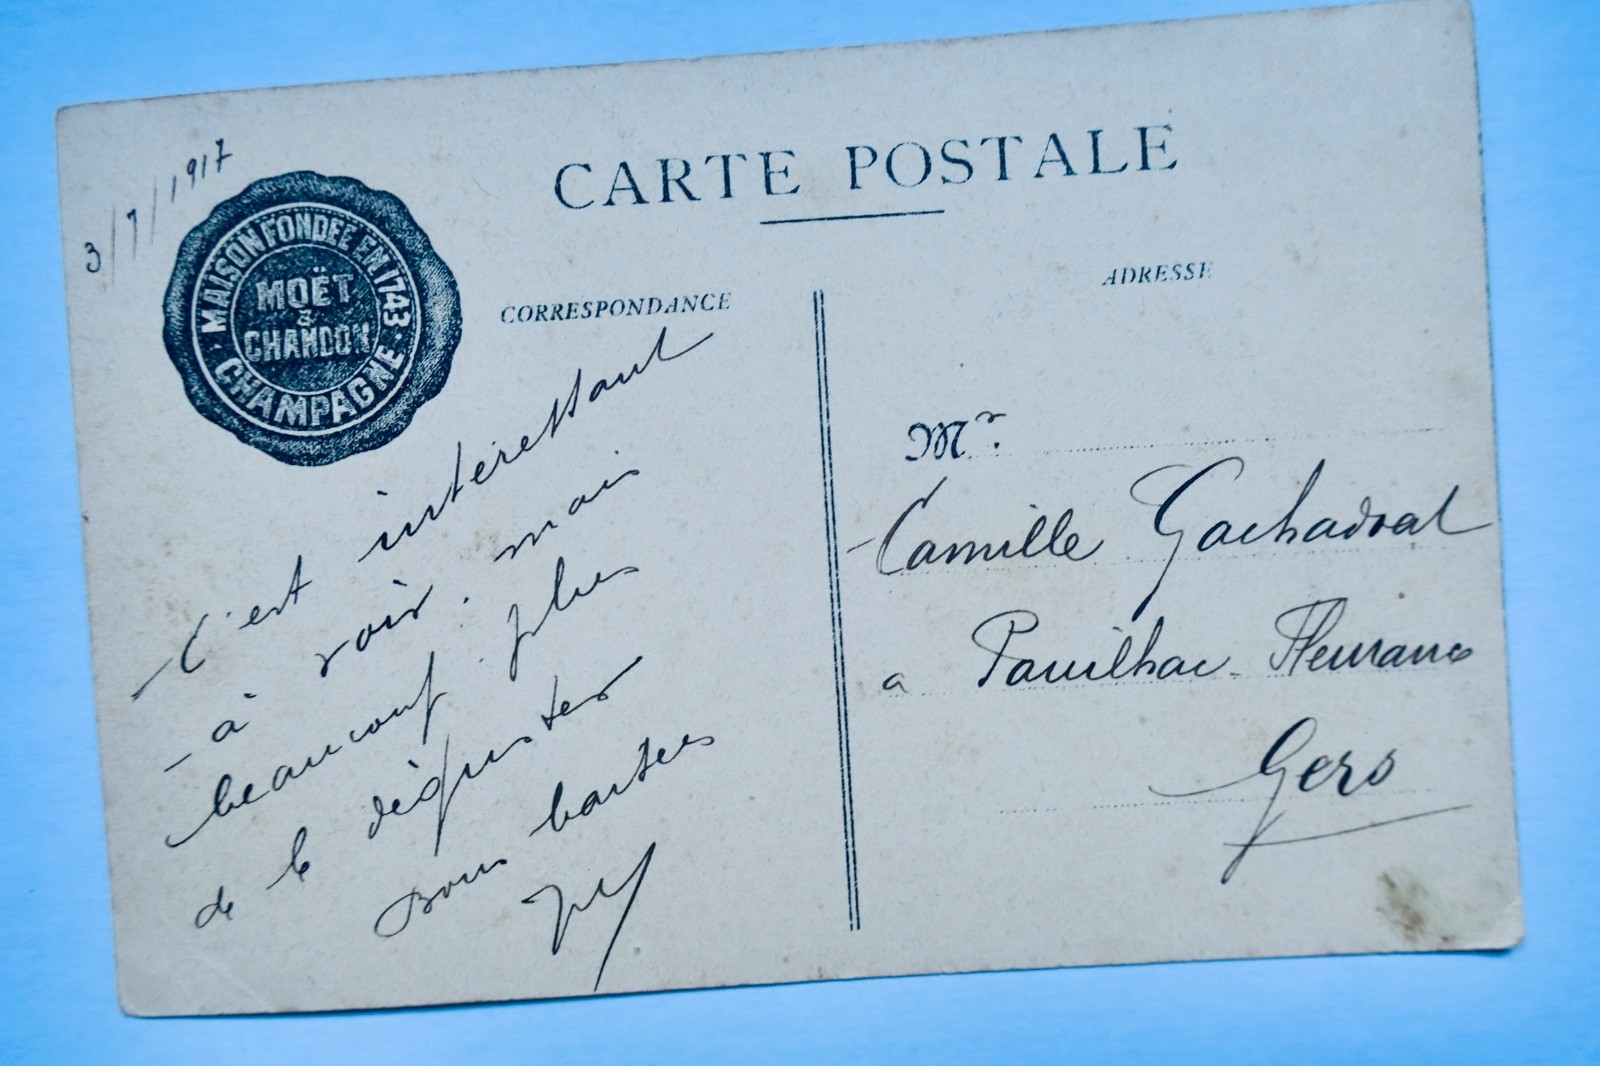 3/7/1917
MAISON FONDÉE EN 1743
MOËT
&
CHANDON
CHAMPAGNE
CARTE POSTALE
CORRESPONDANCE
C'est intéressant
à voir. mais
beaucoup plus
de le déguster
Bons
ADRESSE
Mr.
Camille
a Pauilhac Fleurance
Gers